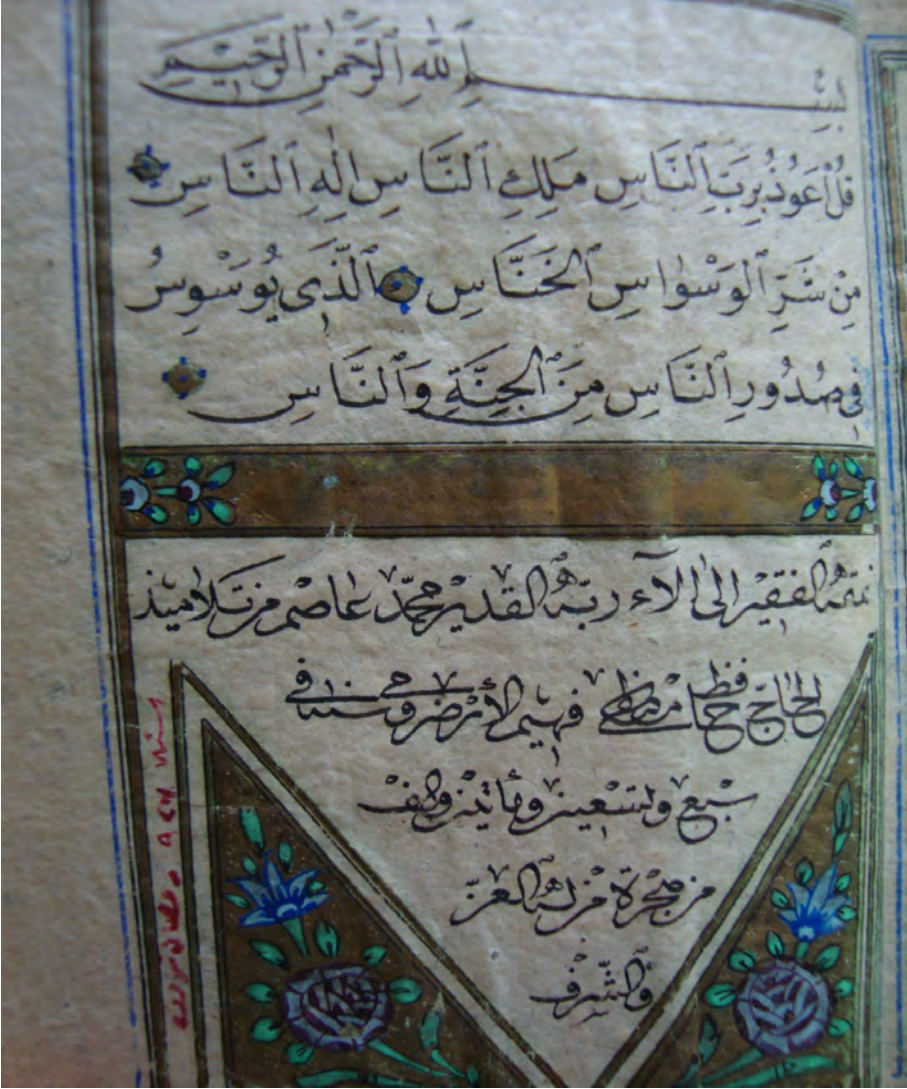 بِسْمِ ٱللّٰهِ ٱلرَّحْمٰنِ ٱلرَّحِيمِ
قُلْ اَعُوذُ بِرَبِّ ٱلنَّاسِ مَلِكِ ٱلنَّاسِ اِلٰهِ ٱلنَّاسِ
مِنْ شَرِّ ٱلْوَسْوَاسِ ٱلْخَنَّاسِ ٱلَّذِى يُوَسْوِسُ
فِى صُدُورِ ٱلنَّاسِ مِنَ ٱلْجِنَّةِ وَٱلنَّاسِ
نمقه الفقير الى آلاء ربه القدير محمد عاصم من تلاميذ
الحاج حافظ مصطفى فهيم الأرضرومى سنة فى
سبع وتسعين ومأتين والف
من هجرة من له العز
والشرف